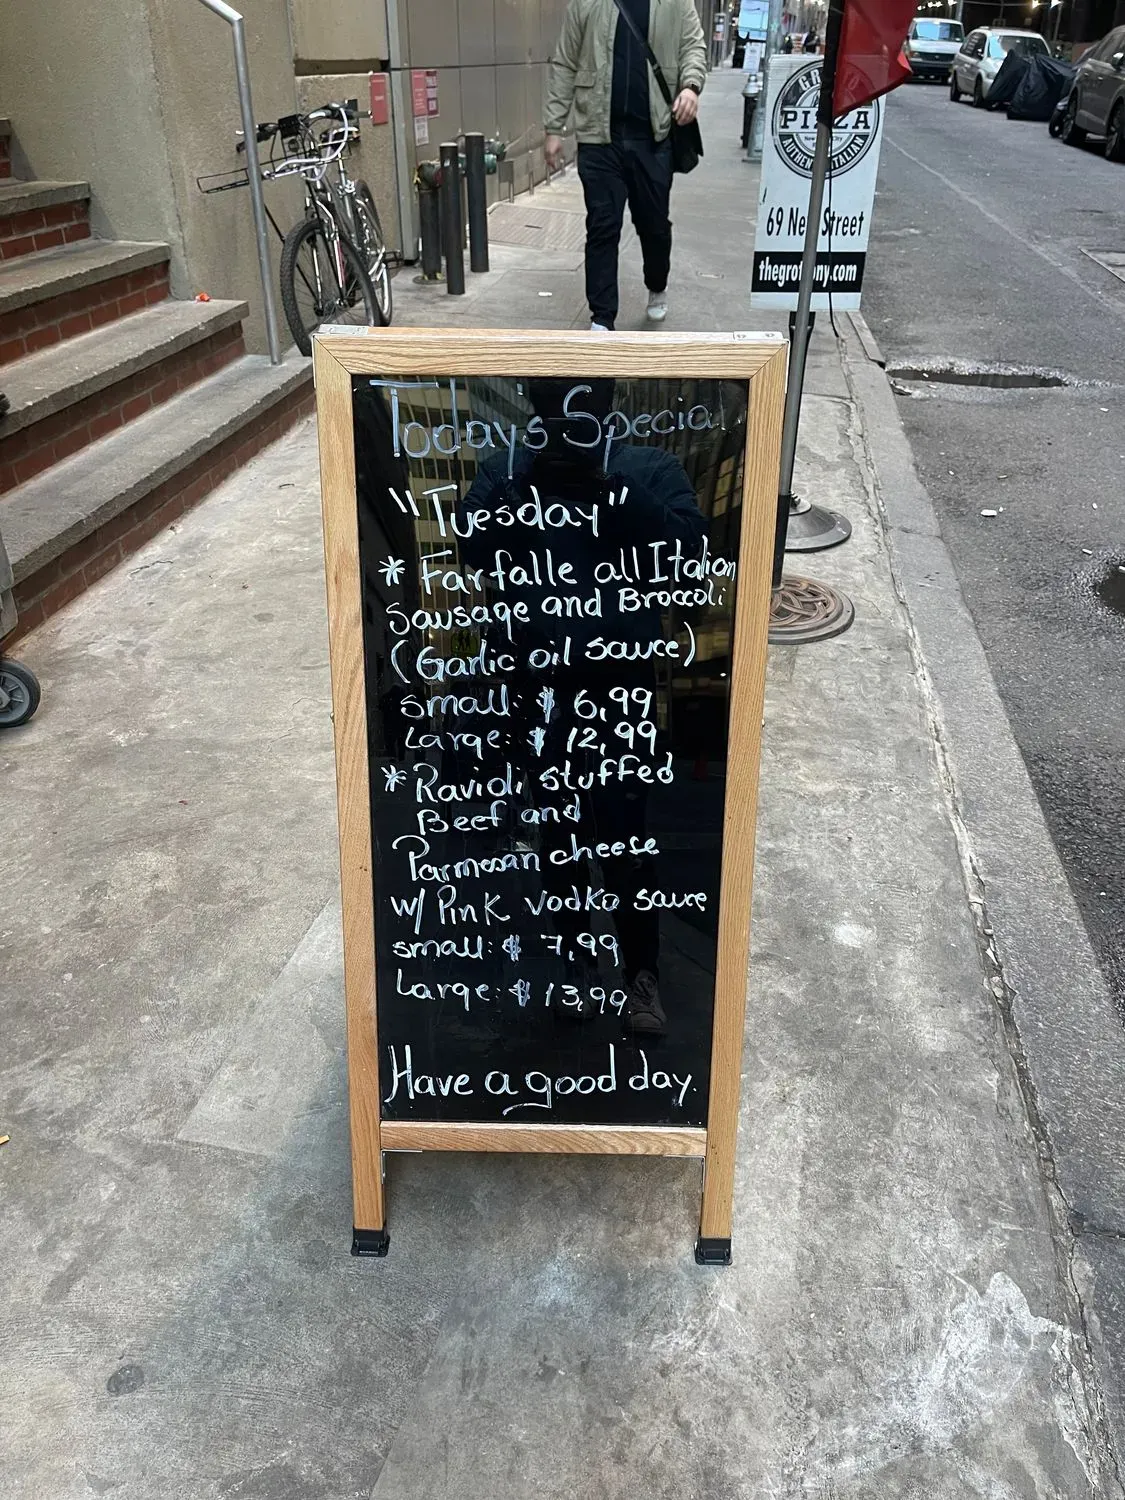 PIZZA
New York City
AUTHENTIC ITALIAN
69 New Street
Today's Special
"Tuesday"
* Farfalle all Italian
Sausage and Broccoli
(Garlic oil sauce)
small: $ 6,99
Large: $ 12,99
* Ravioli stuffed
Beef and
Parmesan cheese
w/ Pink vodka sauce
small: $ 7,99
Large: $ 13,99.
Have a good day.